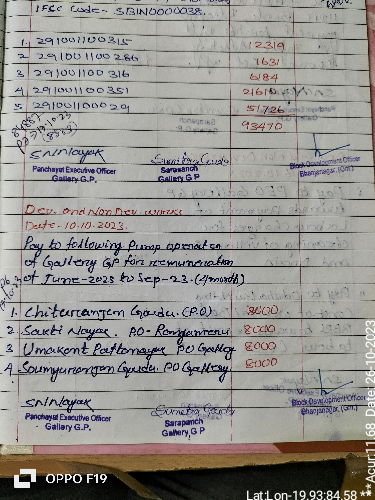 IFSC Code- SBIN0000038.
1. 291001100315 12319
2 291001100286 7631
3 291001100316 6184
4. 291001100351 21610
5. 291001100029 51726
93470
S N Nayak
Panchayat Executive Officer
Gallery G.P.
Sarapanch
Gallery G.P
Block Development Officer
Bhanjanagar, (Gm.)
Dev. and Non Dev. works
Date- 10.10.2023.
Pay to following Pump operator
of Gallery GP for remuneration
of June-2023 to Sep-23. (4 month)
1. Chitaranjan Gouda. (P.O) 8000
2. Sakti Nayak. PO- 8000
3 Umakant Pattanayak PO Gallery 8000
4. Soumyaranjan Gouda. PO Gallery. 8000
S N Nayak
Panchayat Executive Officer
Gallery G.P.
Sarapanch
Gallery G.P
Block Development Officer
Bhanjanagar, (Gm.)
OPPO F19
Lat:Lon-19.93:84.58
**Acur:1168 Date:26-10-2023